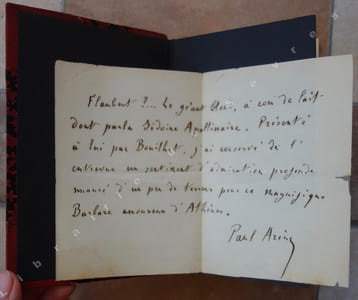 Flaubert ?... Le géant blond, à cou de lait
dont parla Sidoine Apollinaire. Présenté
à lui par Bouilhet, j'ai conservé de l'
entrevue un sentiment d'admiration profonde
nuancé d'un peu de terreur pour ce magnifique
Barbare amoureux d'Athènes.
Paul Arène